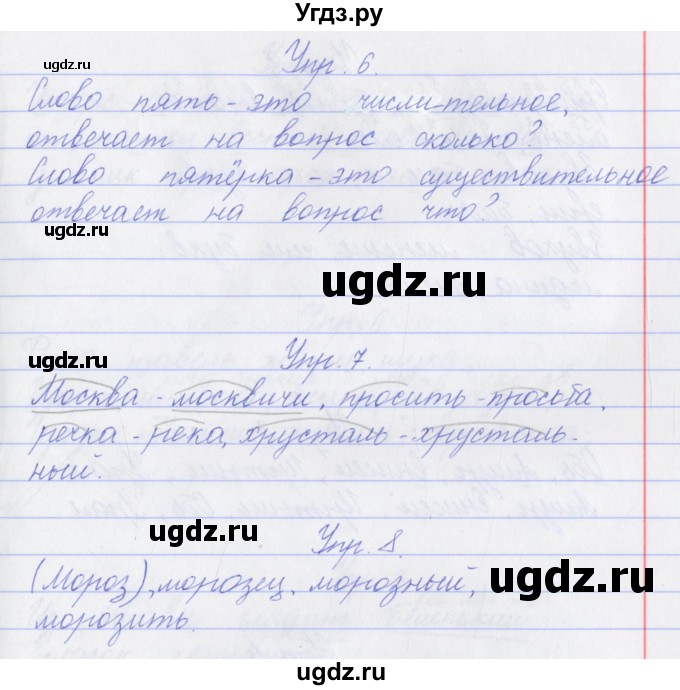 Угдз.ру
ugdz.ru
Упр. 6.
Слово пять - это числительное,
отвечает на вопрос сколько?
Слово пятёрка - это существительное
отвечает на вопрос что?
ugdz.ru
ugdz.ru
ugdz.ru
Упр. 7.
Москва - москвичи, просить - просьба,
речка - река, хрусталь - хрусталь-
ный.
ugdz.ru
Упр. 8.
ugdz.ru
(Мороз), морозец, морозный,
морозить.
ugdz.ru